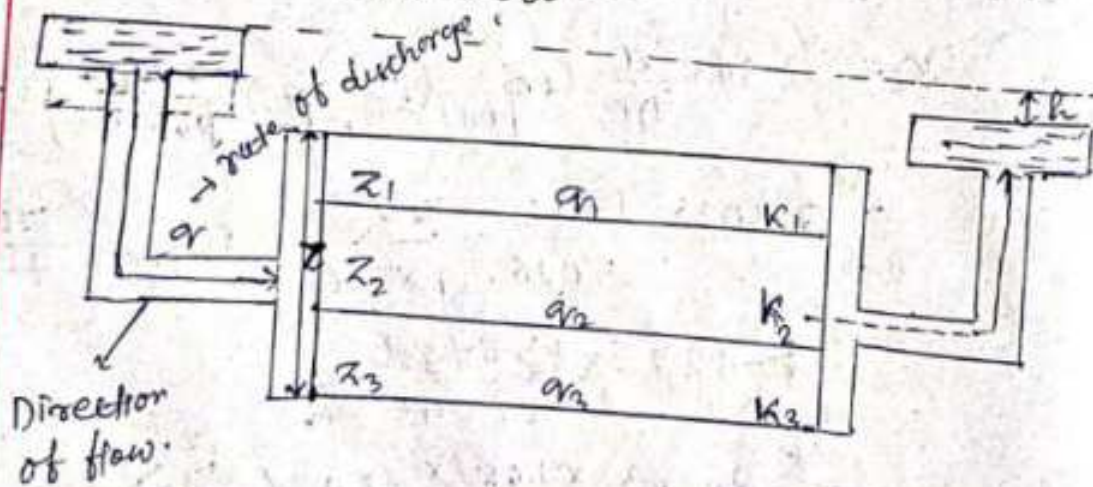 → rate of discharge.
h
q
Z1 q1 K1
Z
Z2 q2 K2
Z3 q3 K3
Direction
of flow.